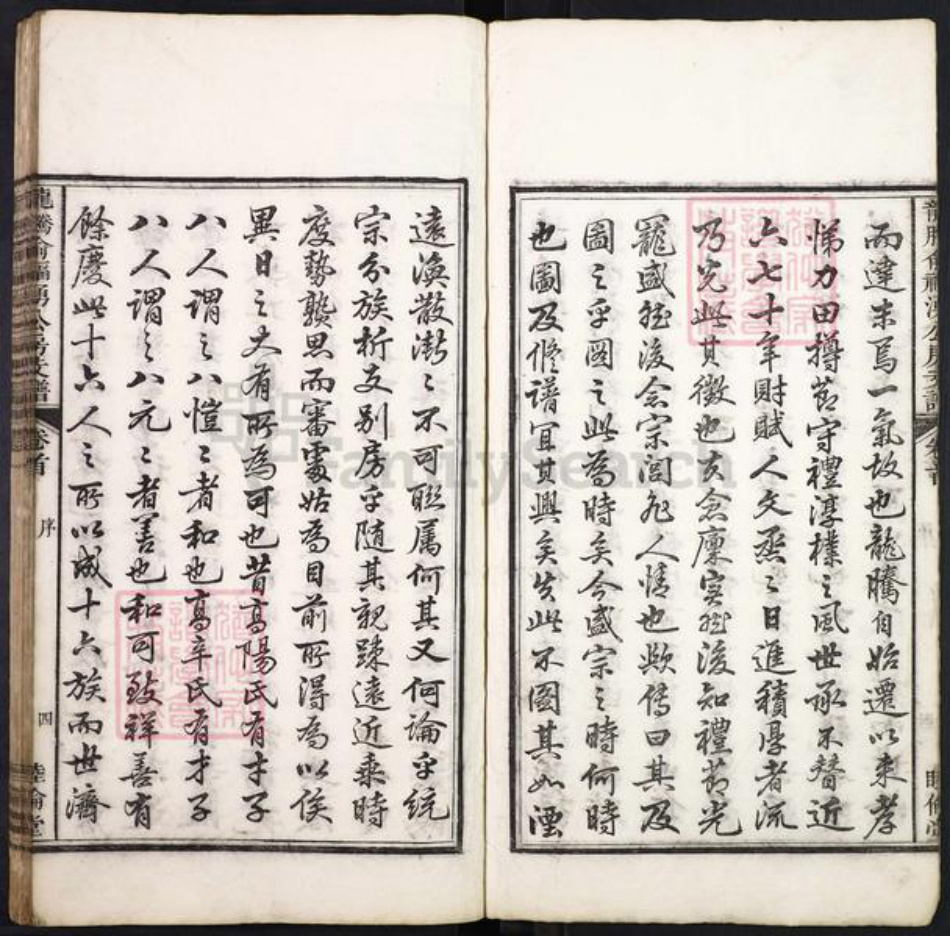 而達未焉一氣故也龍騰自始遷以來孝
悌力田撙節守禮淳樸之風世承不替近
六七十年財賦人文烝烝日進積厚者流
乃光此其徵也夫倉廩實然後知禮節光
寵盛然後念宗閭人情也歟傳曰其及
圖之乎圖之此為時矣今盛宗之時何時
也圖及脩譜宜其興矣失此不圖其如湮
遠渙散漸之不可聯屬何其又何論乎統
宗分族析支別房乎隨其親疎遠近乘時
度勢襲思而審處姑為目前所得為以俟
異日之大有所為可也昔高陽氏有才子
八人謂之八愷愷者和也高辛氏有才子
八人謂之八元元者善也和可致祥善有
餘慶此十六人之所以成十六族而世濟
卷首 序 四 睦倫堂
FamilySearch